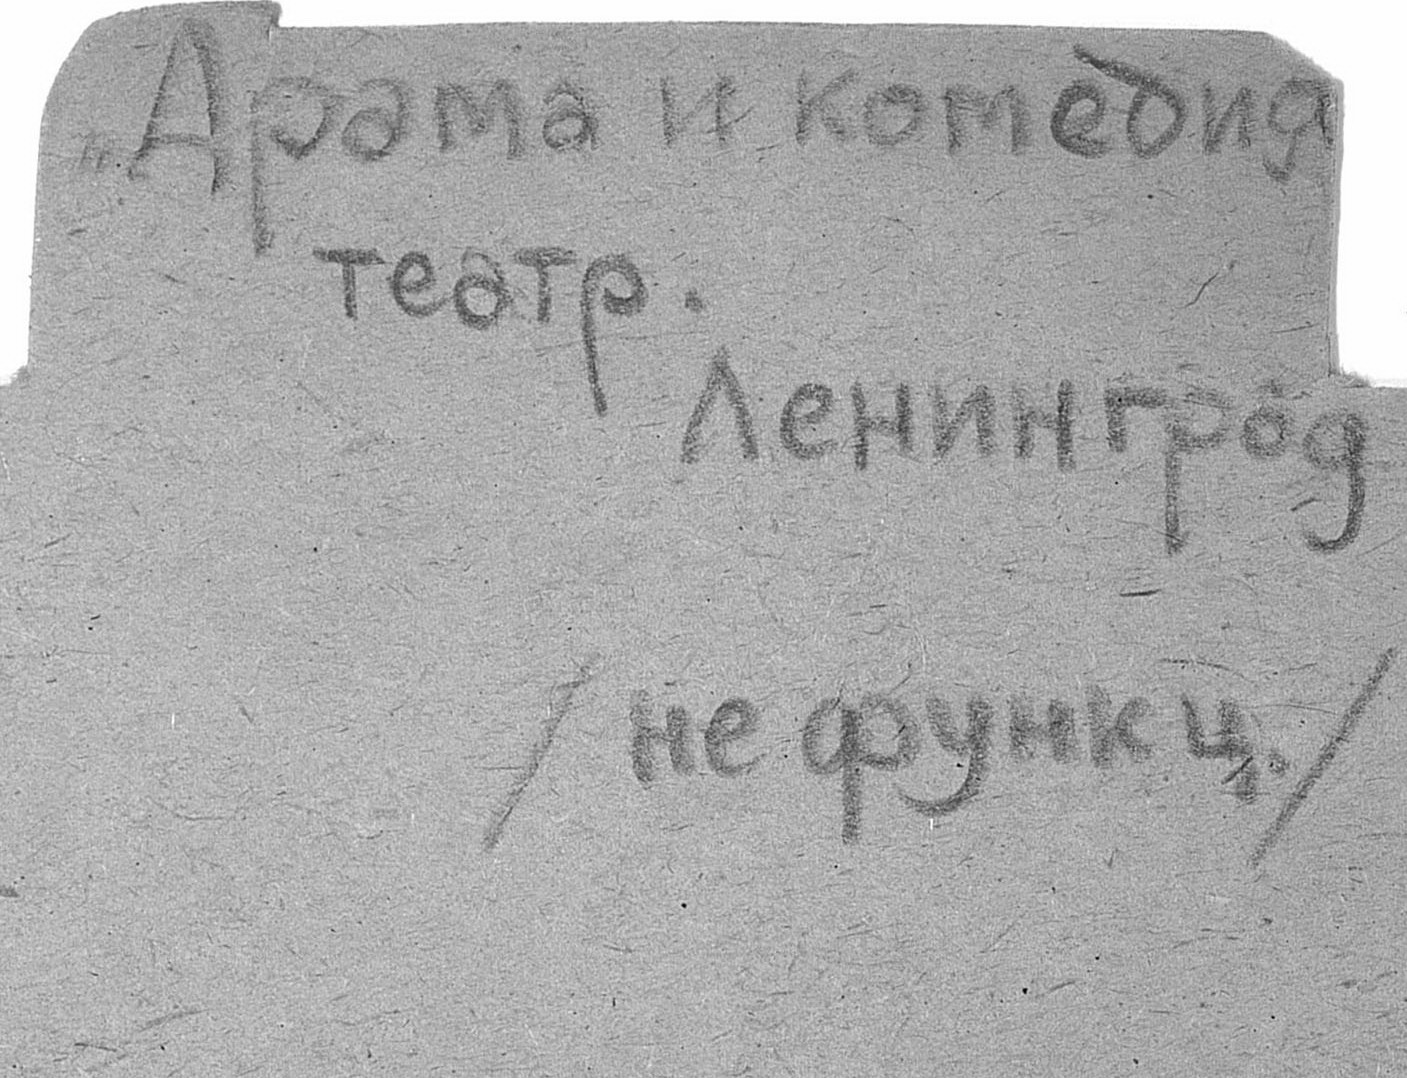 „Драма и комедия
театр.
Ленинград
/ не функц. /